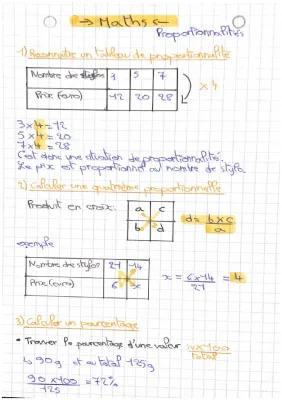 → Maths ←
Proportionnalités
1) Reconnaître un tableau de proportionnalité
Nombre de stylos 3 5 7
Prix (euro) 12 20 28
x 4
3 x 4 = 12
5 x 4 = 20
7 x 4 = 28
C'est donc une situation de proportionnalité.
Le prix est proportionnel au nombre de stylo
2) Calculer une quatrième proportionnelle
Produit en croix:
a c
b d
d = b x c
a
exemple
Nombre de stylos 21 14
Prix (euro) 6 x
x = 6 x 14 = 4
21
3) Calculer un pourcentage
• Trouver le pourcentage d'une valeur x100
total
↳ 90g et au total 125g
90 x 100 = 72%
125